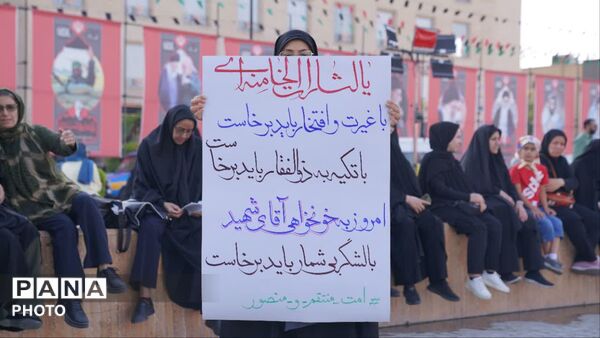 یالثارات الخامنه ای
با غیرت و افتخار باید برخاست
با تکیه به ذوالفقار باید برخاست
امروز به خونخواهی آقای شهید
با لشگر بی شمار باید برخاست
امت_منتقم_و_منصور
PANA
PHOTO